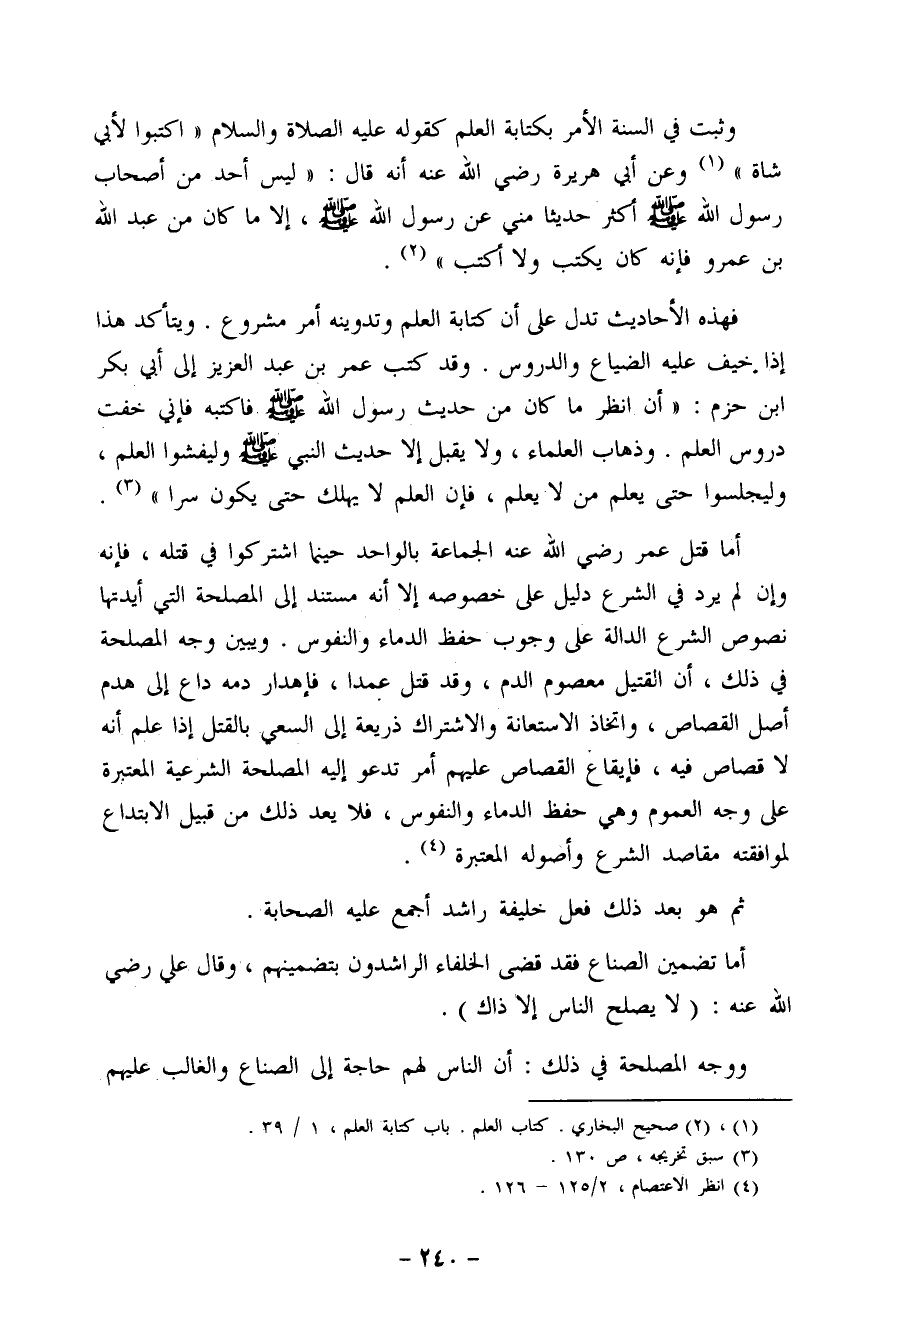 وثبت في السنة الأمر بكتابة العلم كقوله عليه الصلاة والسلام « اكتبوا لأبي
شاة » (١) وعن أبي هريرة رضي الله عنه أنه قال : « ليس أحد من أصحاب
رسول الله ﷺ أكثر حديثا مني عن رسول الله ﷺ ، إلا ما كان من عبد الله
بن عمرو فإنه كان يكتب ولا أكتب » (٢) .
فهذه الأحاديث تدل على أن كتابة العلم وتدوينه أمر مشروع . ويتأكد هذا
إذا خيف عليه الضياع والدروس . وقد كتب عمر بن عبد العزيز إلى أبي بكر
ابن حزم : « أن انظر ما كان من حديث رسول الله ﷺ فاكتبه فإني خفت
دروس العلم . وذهاب العلماء ، ولا يقبل إلا حديث النبي ﷺ وليفشوا العلم ،
وليجلسوا حتى يعلم من لا يعلم ، فإن العلم لا يهلك حتى يكون سرا » (٣) .
أما قتل عمر رضي الله عنه الجماعة بالواحد حينما اشتركوا في قتله ، فإنه
وإن لم يرد في الشرع دليل على خصوصه إلا أنه مستند إلى المصلحة التي أيدتها
نصوص الشرع الدالة على وجوب حفظ الدماء والنفوس . ويبين وجه المصلحة
في ذلك ، أن القتيل معصوم الدم ، وقد قتل عمدا ، فإهدار دمه داع إلى هدم
أصل القصاص ، واتخاذ الاستعانة والاشتراك ذريعة إلى السعي بالقتل إذا علم أنه
لا قصاص فيه ، فإيقاع القصاص عليهم أمر تدعو إليه المصلحة الشرعية المعتبرة
على وجه العموم وهي حفظ الدماء والنفوس ، فلا يعد ذلك من قبيل الابتداع
لموافقته مقاصد الشرع وأصوله المعتبرة (٤) .
ثم هو بعد ذلك فعل خليفة راشد أجمع عليه الصحابة .
أما تضمين الصناع فقد قضى الخلفاء الراشدون بتضمينهم ، وقال علي رضي
الله عنه : ( لا يصلح الناس إلا ذاك ) .
ووجه المصلحة في ذلك : أن الناس لهم حاجة إلى الصناع والغالب عليهم
(١) ، (٢) صحيح البخاري . كتاب العلم . باب كتابة العلم ، ١ / ٣٩ .
(٣) سبق تخريجه ، ص ١٣٠ .
(٤) انظر الاعتصام ، ١٢٥/٢ – ١٢٦ .
- ٢٤٠ -